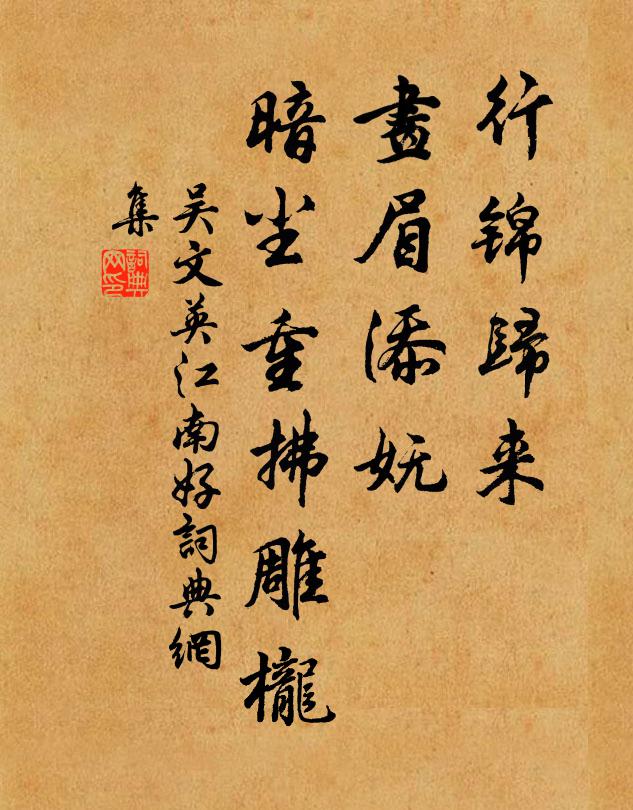 行锦歸来
畫眉添妩
暗尘重拂雕櫳
吴文英江南好詞典網
集
詞典网印